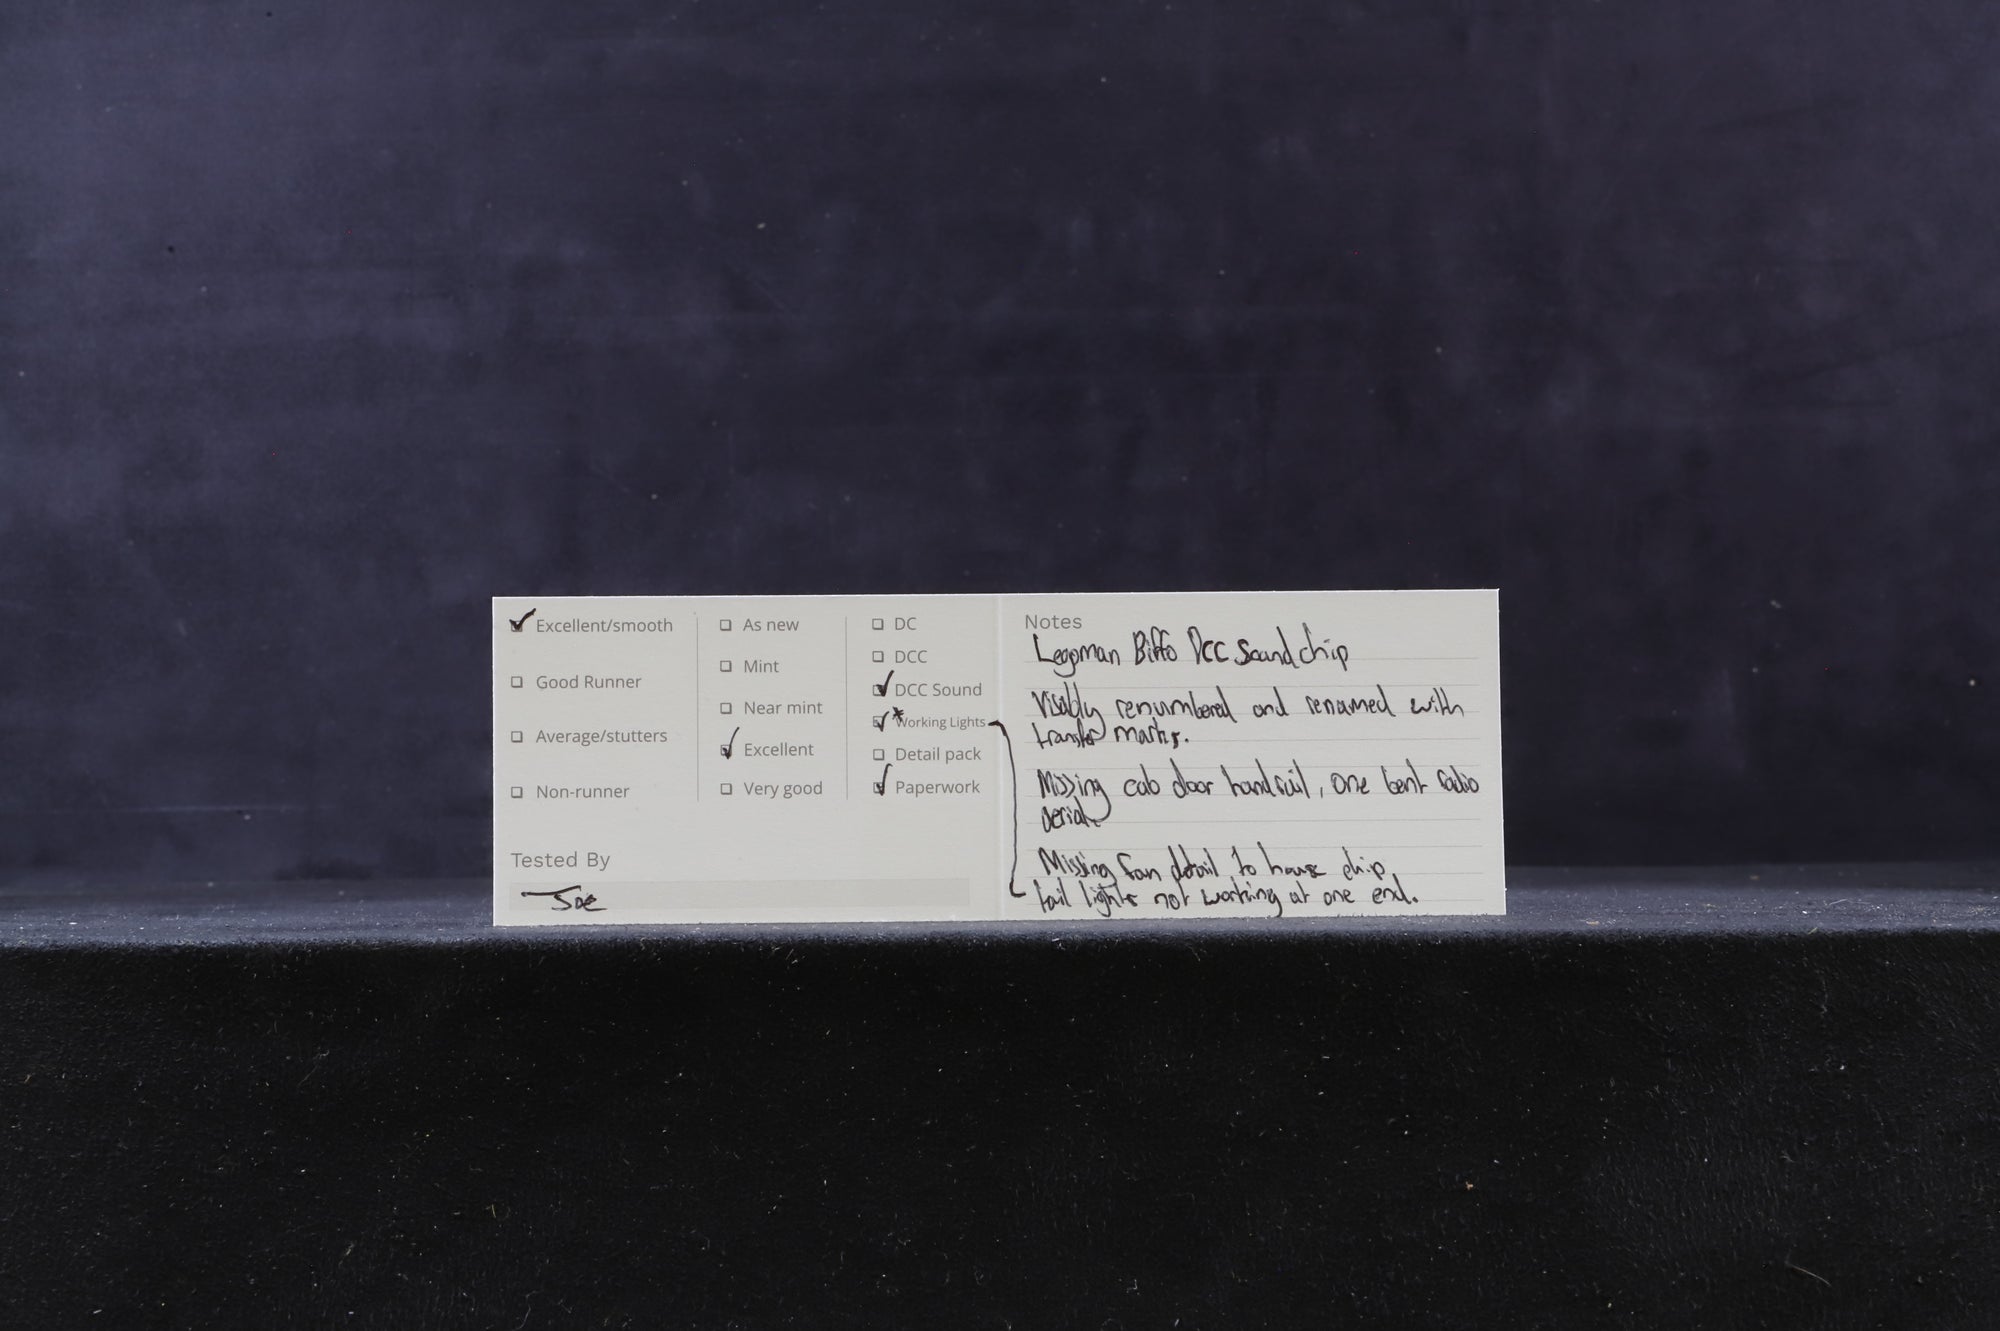 Excellent/smooth
Good Runner
Average/stutters
Non-runner
As new
Mint
Near mint
Excellent
Very good
DC
DCC
DCC Sound
*Working Lights
Detail pack
Paperwork
Tested By
Joe
Notes
Legoman Biffo DCC Sound chip
Visably renumbered and renamed with
transfer marks.
Missing cab door handrail, one bent radio
aerial.
Missing fan detail to house chip
tail lights not working at one end.